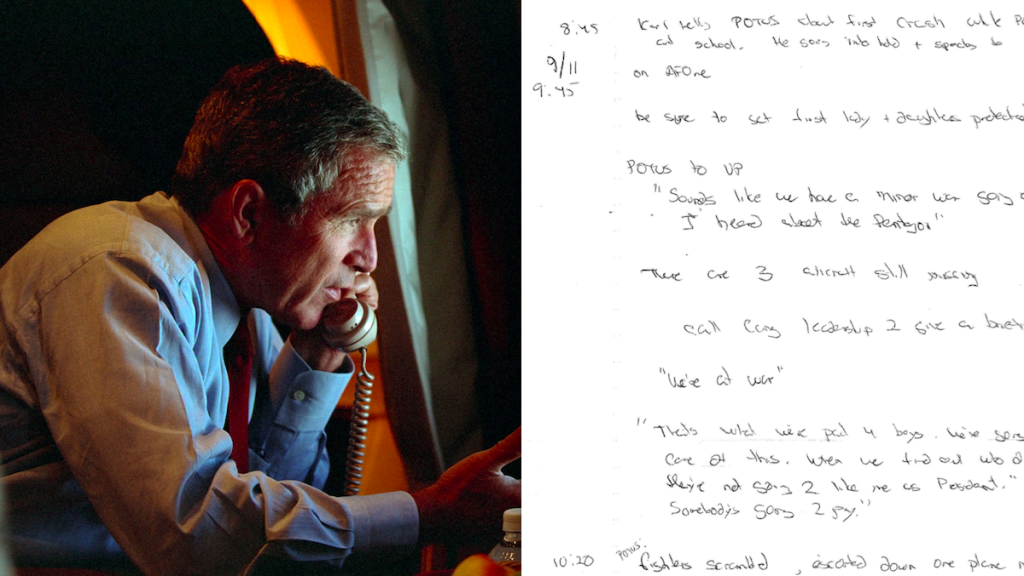 8:45 Karl tells POTUS about first crash while
at school. He goes into hold + speaks to
9/11
on AFOne
9:45
be sure to get first lady + daughters protected
POTUS to VP
"Sounds like we have a minor war going
I heard about the Pentagon"
There are 3 aircraft still missing
call Cong leadership 2 give a
"We're at war"
"That's what we're paid 4 boys. We're going
care of this. When we find out who
they're not going 2 like me as President."
Somebody's going 2 pay."
10:20 POTUS: fighters scrambled, escorted down one plane